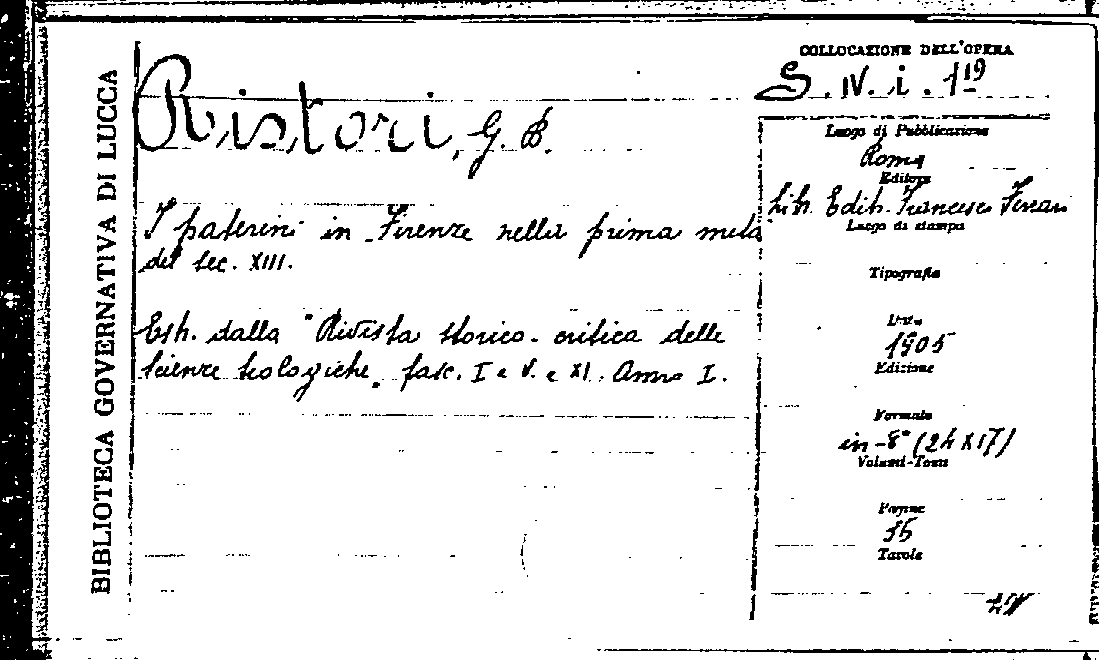 BIBLIOTECA GOVERNATIVA DI LUCCA
Ristori, G. B.
I paterini in Firenze nella prima metà
del sec. XIII.
Estr. dalla "Rivista storico-critica delle
scienze teologiche„ fasc. I e V. e XI. Anno I.
COLLOCAZIONE DELL'OPERA
S. IV. i. 119
Luogo di Pubblicazione
Roma
Editore
Lib. Edit. Francesco Ferrari
Luogo di stampa
Tipografia
Data
1905
Edizione
Formato
in-8° (24 x 17)
Volumi-Tomi
Pagine
Tavole